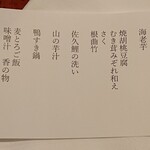 海老芋
焼胡桃豆腐
むき茸みぞれ和え
さく
根曲竹
佐久鯉の洗い
山の芋汁
鴨すき鍋
麦とろご飯
味噌汁 香の物